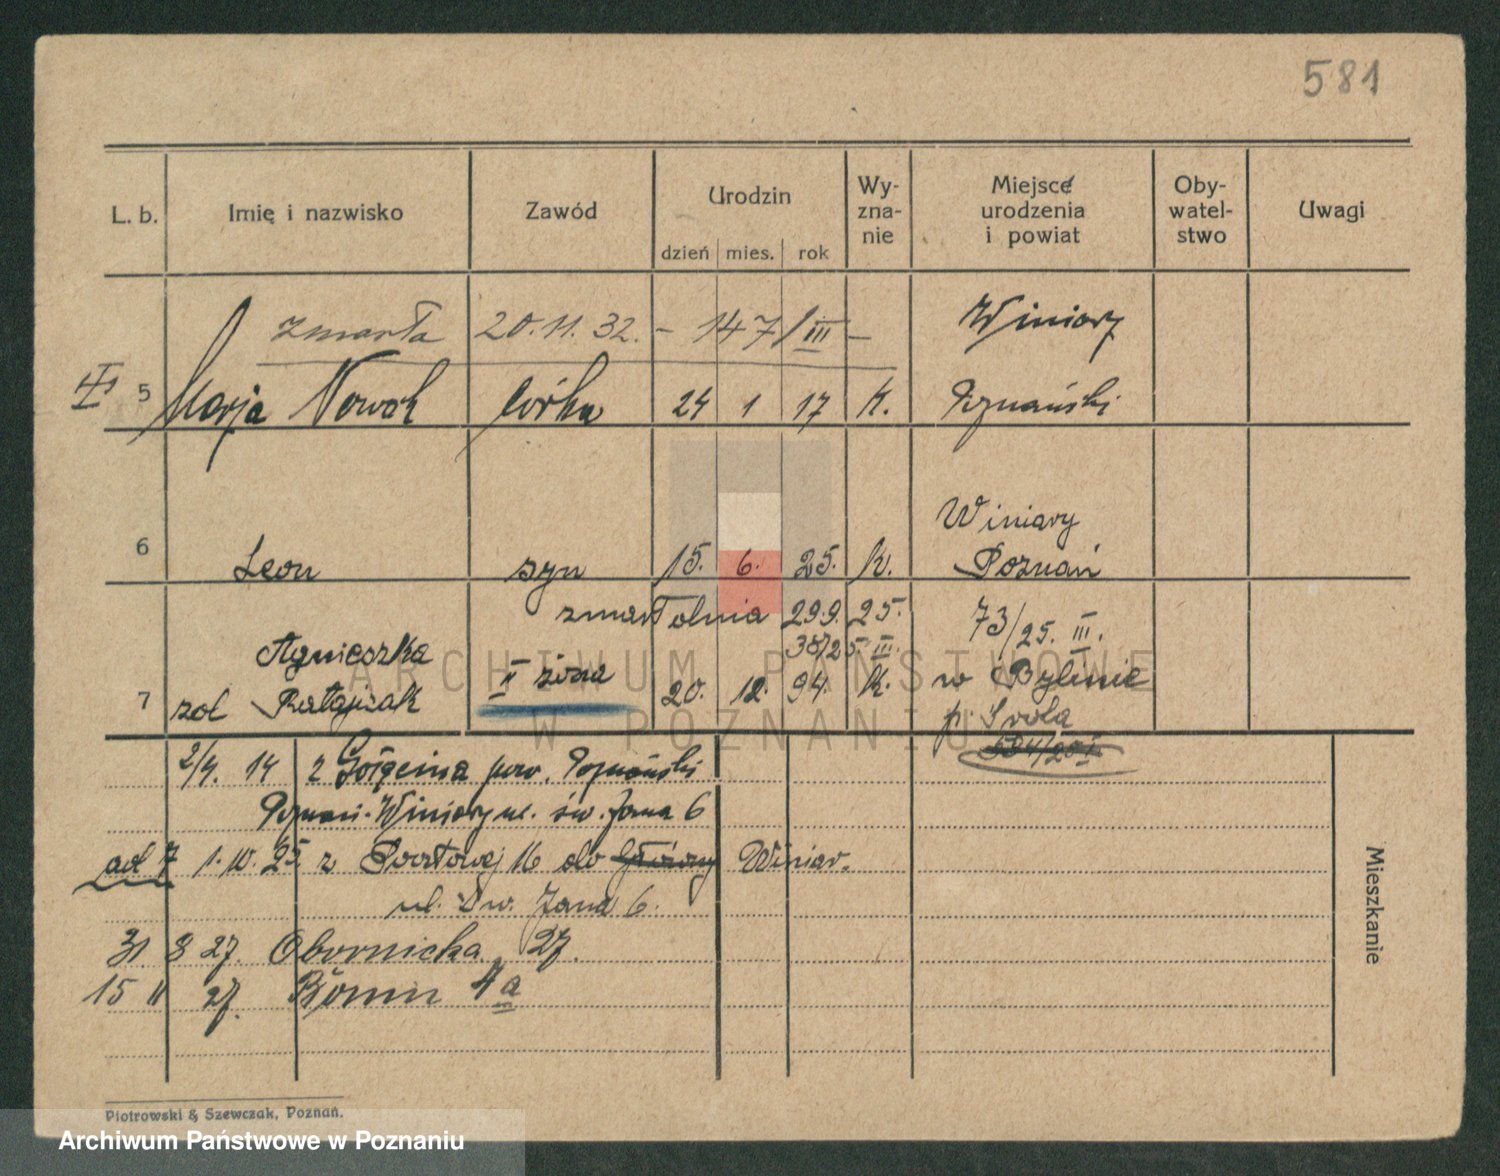 581
L. b. Imię i nazwisko Zawód Urodzin dzień mies. rok Wy-zna-nie Miejsce urodzenia i powiat Oby-watel-stwo Uwagi
zmarła 20.11.32. - 147/III - Winiary
5 Marja Nowak córka 24 1 17 K. Poznański
Winiary
6 Leon syn 15. 6. 25. k. Poznań
zmarł dnia 29.9. 25. 73/25. III.
Agnieszka II żona 20. 12. 94. k. w Bylinie
7 zol Ratajczak p. Środa
ARCHIWUM PAŃSTWOWE
W POZNANIU
2/4. 14 z Golęcina pow. Poznański
Poznań-Winiary ul. św. Jana 6
ad 7 1.10.25 z Pocztowej 16 do Winiar.
ul. Św. Jana 6.
31. 8 27. Obornicka 27.
15 11 27. 4a
Mieszkanie
Piotrowski & Szewczak, Poznań.
Archiwum Państwowe w Poznaniu